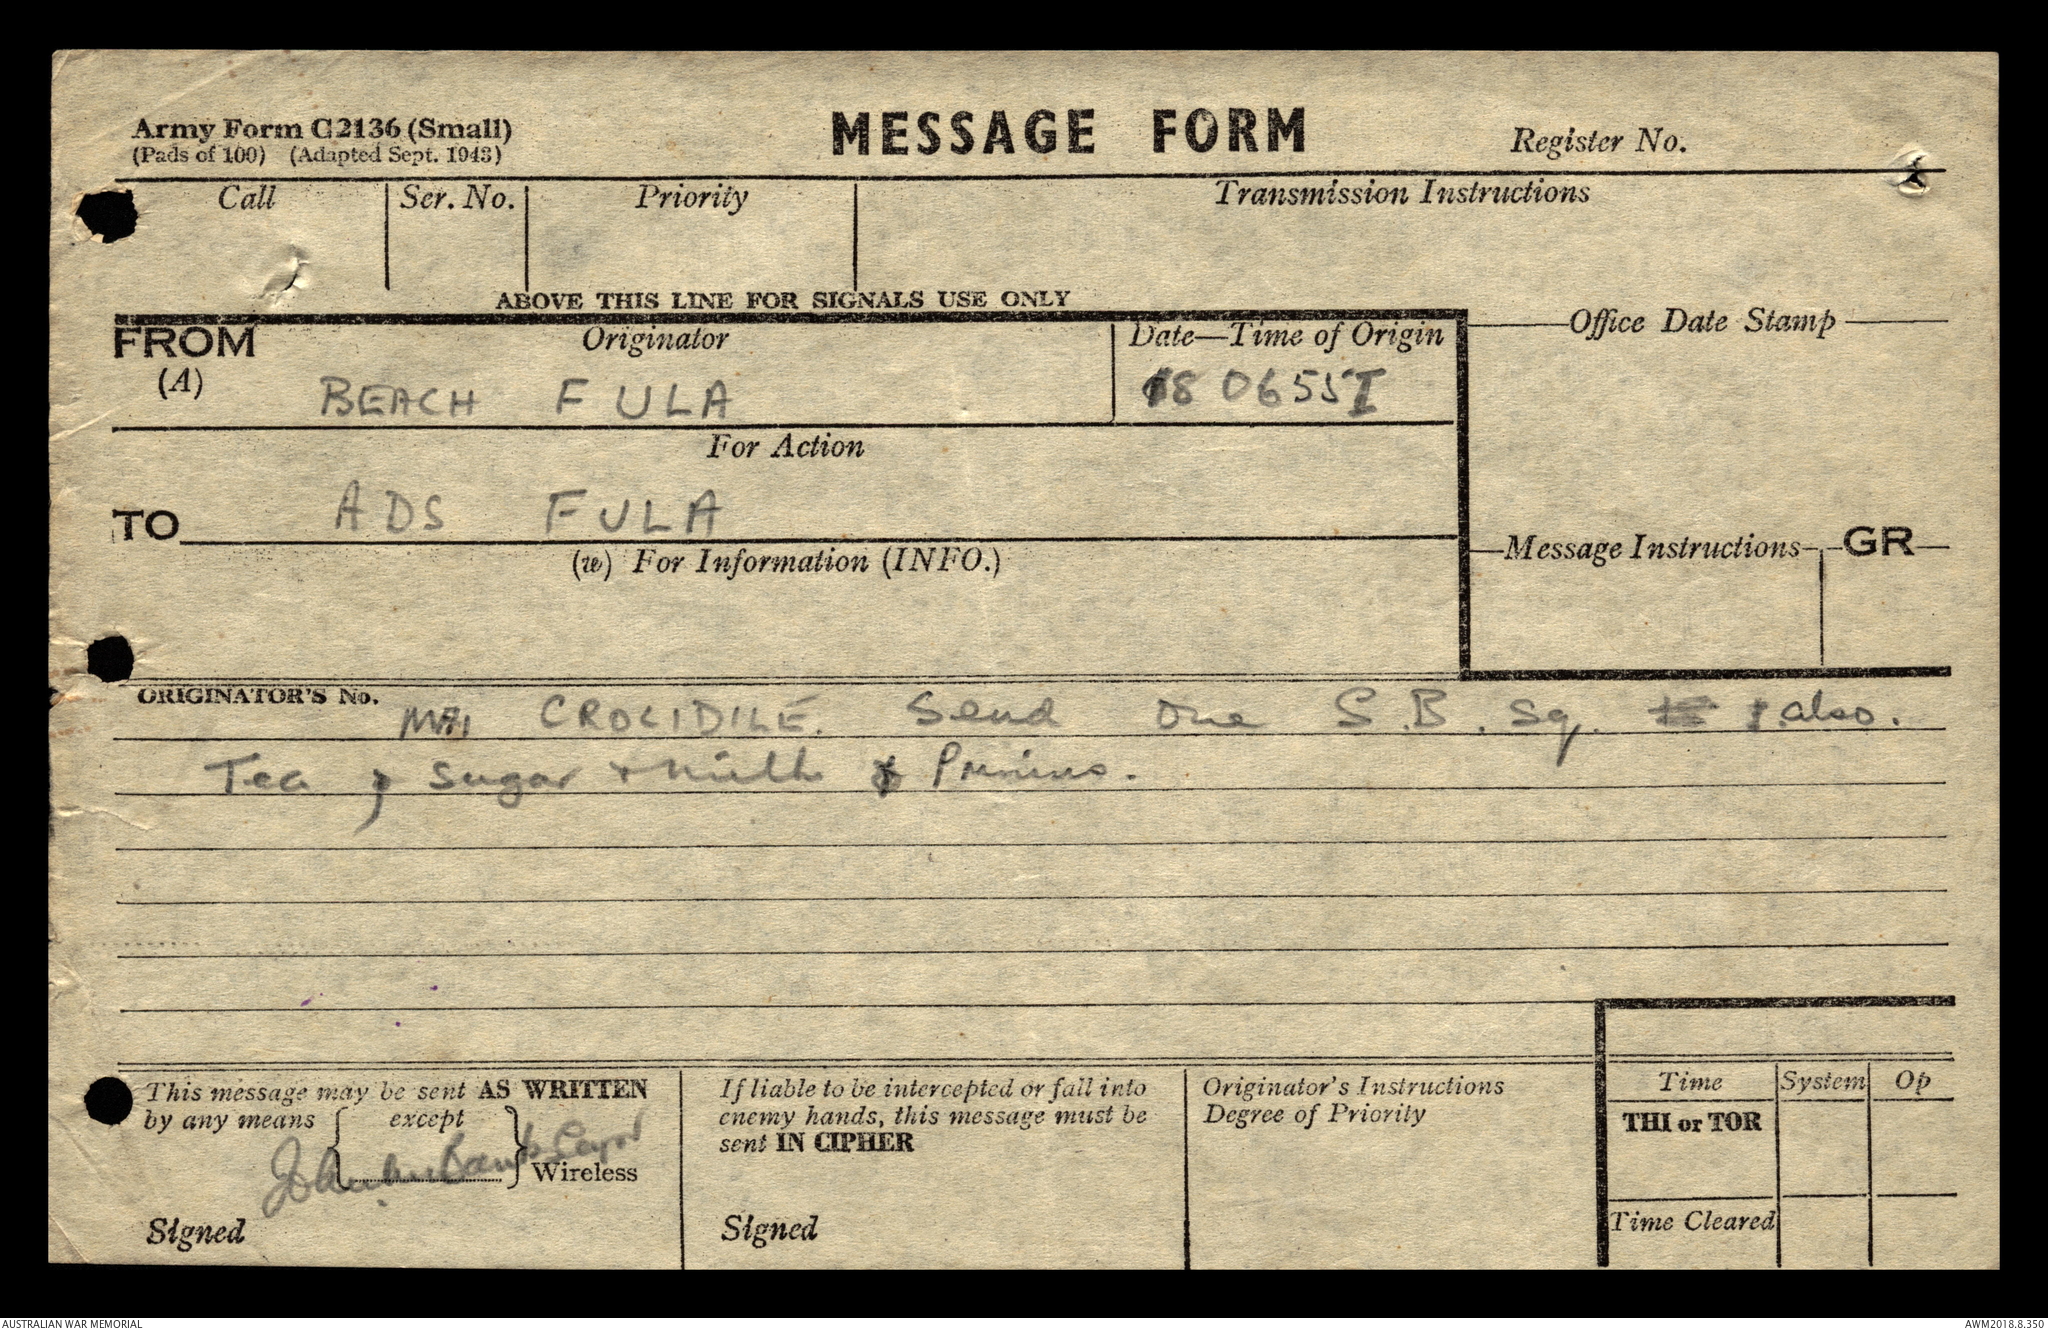 Army Form C2136 (Small)
(Pads of 100) (Adapted Sept. 1943)
MESSAGE FORM
Register No.
Call
Ser. No.
Priority
Transmission Instructions
ABOVE THIS LINE FOR SIGNALS USE ONLY
FROM
(A)
Originator
BEACH FULA
Date—Time of Origin
180655I
Office Date Stamp
For Action
TO
ADS FULA
(w) For Information (INFO.)
Message Instructions
GR
ORIGINATOR'S No.
CROCIDILE. Send One S.B. Sq. also.
Tea , Sugar + Milk & Primus.
This message may be sent AS WRITTEN
by any means
except
Wireless
Signed
If liable to be intercepted or fall into
enemy hands, this message must be
sent IN CIPHER
Signed
Originator's Instructions
Degree of Priority
Time
System
Op
THI or TOR
Time Cleared
AUSTRALIAN WAR MEMORIAL
AWM2018.8.350